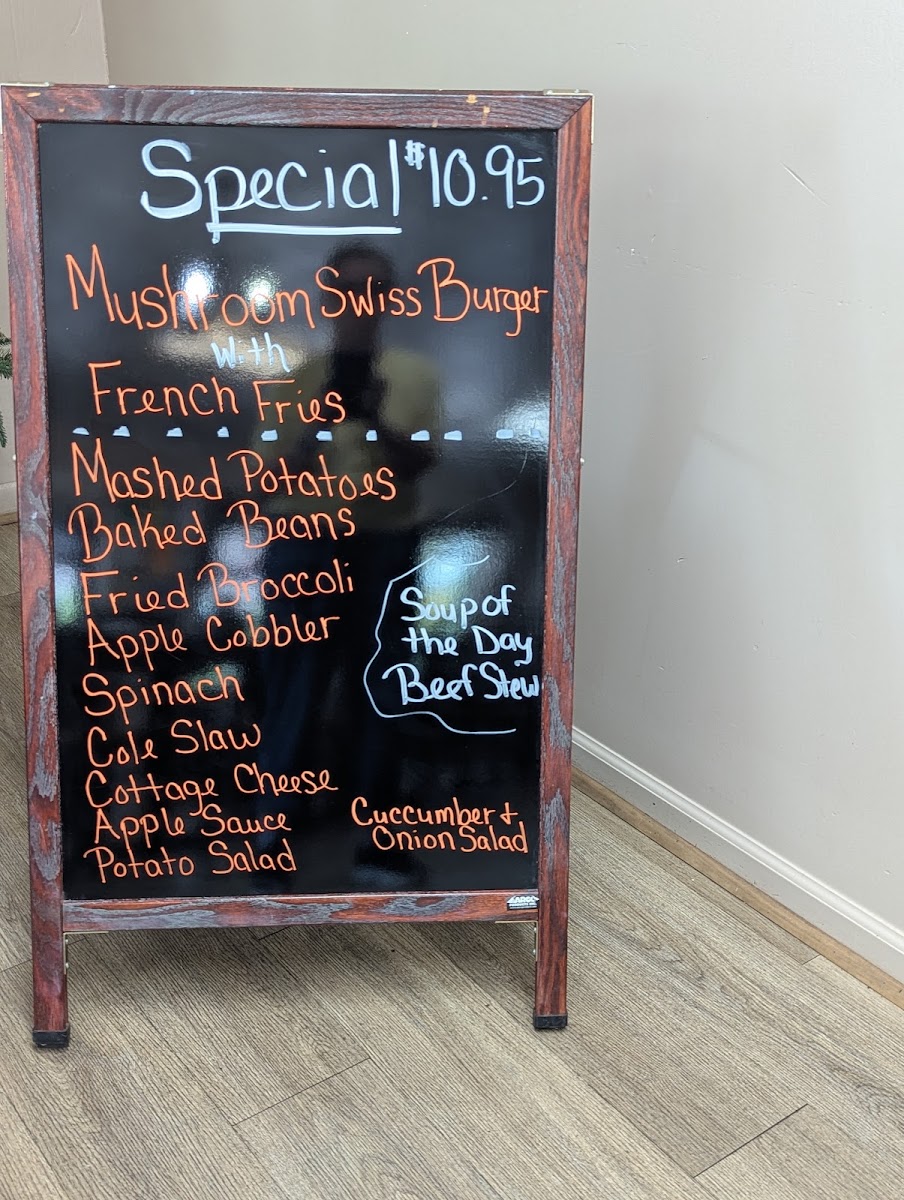 Special $10.95
Mushroom Swiss Burger
with
French Fries
Mashed Potatoes
Baked Beans
Fried Broccoli
Apple Cobbler
Spinach
Cole Slaw
Cottage Cheese
Apple Sauce
Potato Salad
Soup of
the Day
Beef Stew
Cuccumber +
Onion Salad
AARCO